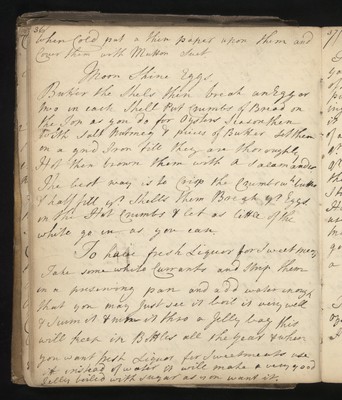 36
when Cold put a thin paper upon them and
Cover them with Mutton Suet
Moon Shine Eggs
Butter the Shels then break an Egg or
two in each Shell Put Crumbs of Bread on
the Top as you do for Oysters Season them
with Salt Nutmeg & pieces of Butter Set them
on a grid Iron till they are thoroughly
Hot then brown them with a Salamander
The best way is to Crisp the Crumbs wth butter
& half fill yr Shells then Break yr Eggs
in the Hot Crumbs & let as little of the
white go in as you can
To have fresh Liquor for Sweet meats
Take some white Currants and strip them
in a preserving pan and add water enough
that you may Just see it boil it very well
& Scum it & run it thro a Jelly bag this
will keep in Bottles all the year & when
you want fresh Liquor for Sweetmeats use
it instead of water it will make a very good
Jelly boiled with sugar as you want it
37